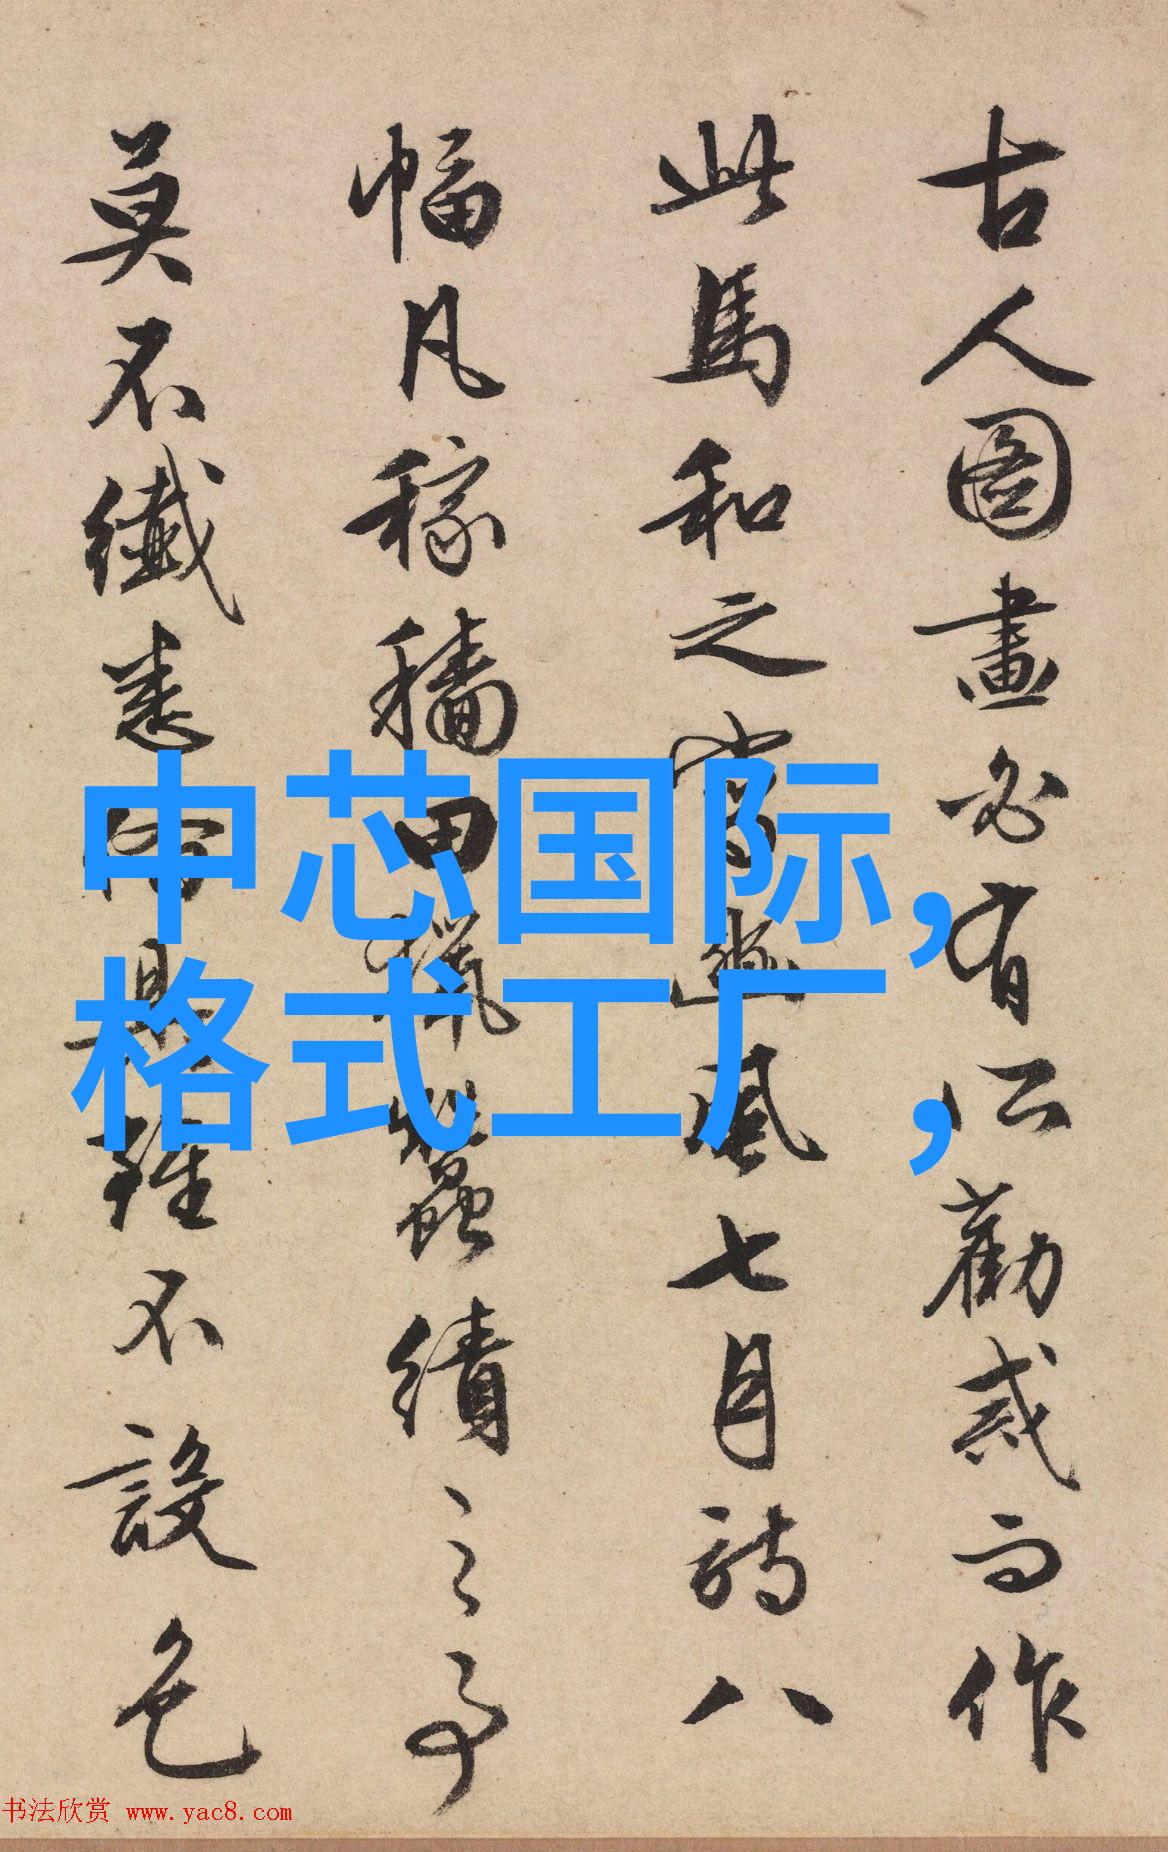 古人圖畫必有所勸戒而作
此馬和之寫豳風七月詩八
幅凡稼穡田獵蠶績之事
莫不纖悉備具雖不設色
中芯国际,
格式工厂,
书法欣赏 www.yac8.com